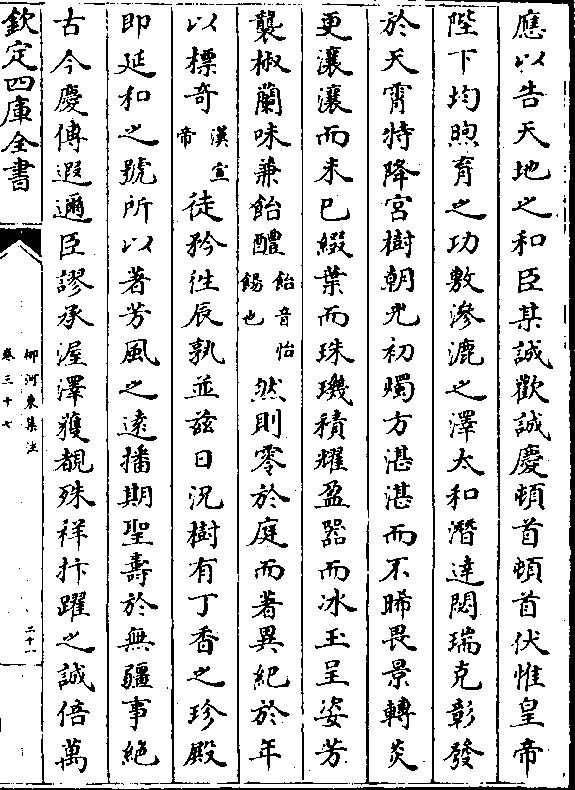 應以告天地之和臣某誠歡誠慶頓首頓首伏惟皇帝
陛下均煦育之功敷滲漉之澤太和潛達閎瑞克彰發
於天霄特降宮樹朝光初燭方湛湛而不晞畏景轉炎
更瀼瀼而未已綴葉而珠璣積耀盈器而冰玉呈姿芳
襲椒蘭味兼飴醴飴音怡餳也然則零於庭而著異紀於年
以標奇漢宣帝徒矜徃辰孰並兹日況樹有丁香之珍殿
即延和之號所以著芳風之遠播期聖壽於無疆事絶
古今慶傳遐邇臣謬承渥澤獲覩殊祥抃躍之誠倍萬
欽定四庫全書
柳河東集注
卷三十七
二十一